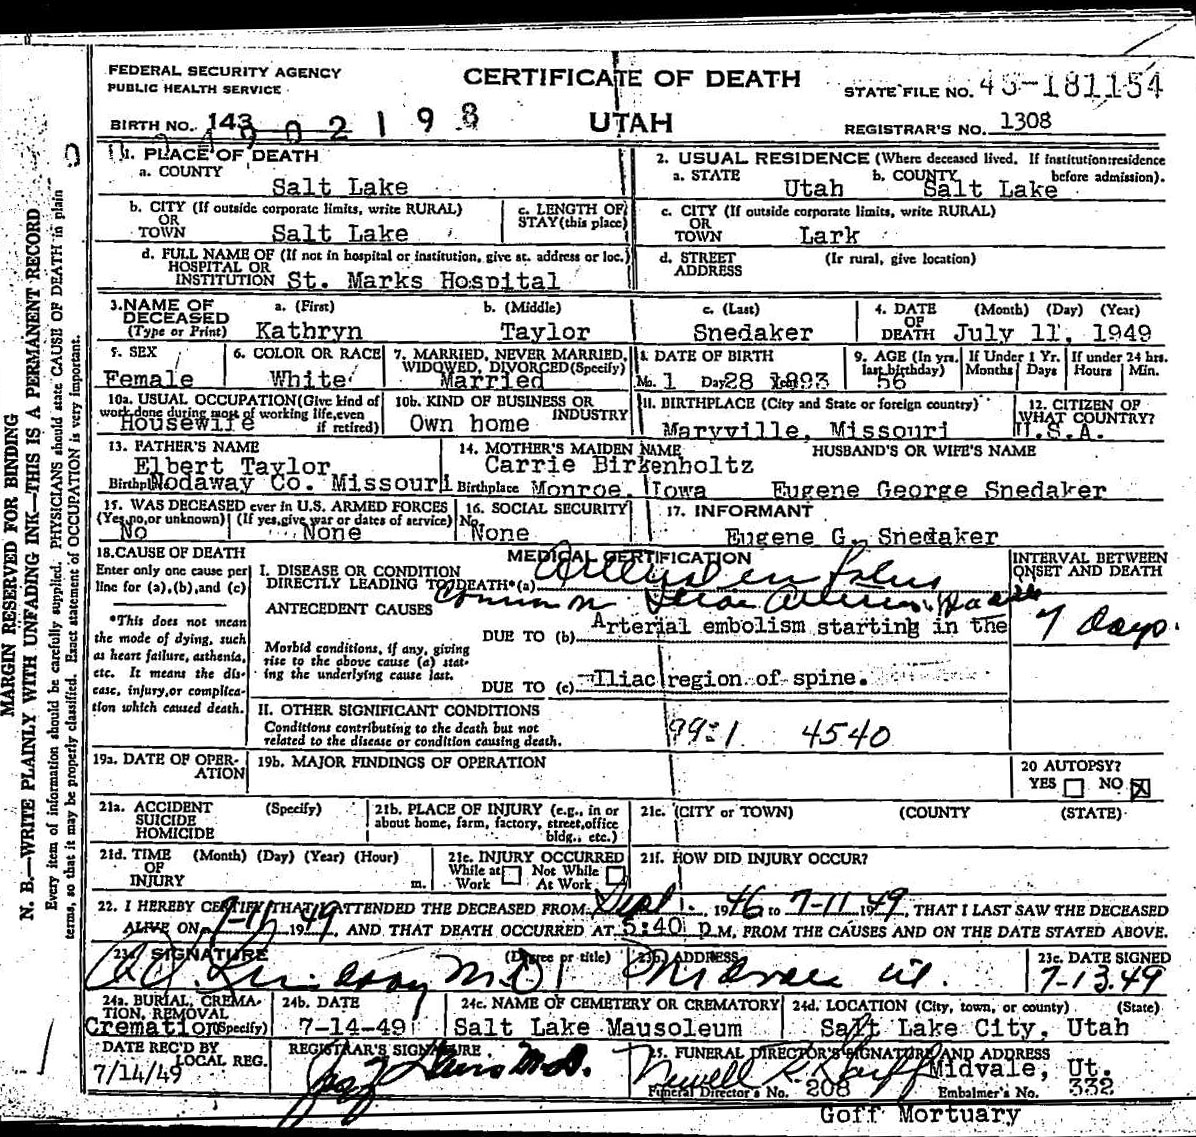 FEDERAL SECURITY AGENCY
PUBLIC HEALTH SERVICE
CERTIFICATE OF DEATH
UTAH
STATE FILE NO. 49-181154
BIRTH NO. 143
REGISTRAR'S NO. 1308
1. PLACE OF DEATH
a. COUNTY
Salt Lake
2. USUAL RESIDENCE (Where deceased lived. If institution:residence before admission).
a. STATE Utah b. COUNTY Salt Lake
b. CITY (If outside corporate limits, write RURAL)
OR
TOWN Salt Lake
c. LENGTH OF
STAY (this place)
c. CITY (If outside corporate limits, write RURAL)
OR
TOWN Lark
d. FULL NAME OF (If not in hospital or institution, give st. address or loc.)
HOSPITAL OR
INSTITUTION St. Marks Hospital
d. STREET (If rural, give location)
ADDRESS
3. NAME OF DECEASED (Type or Print)
a. (First) b. (Middle) c. (Last)
Kathryn Taylor Snedaker
4. DATE OF DEATH (Month) (Day) (Year)
July 11, 1949
5. SEX
Female
6. COLOR OR RACE
White
7. MARRIED, NEVER MARRIED, WIDOWED, DIVORCED (Specify)
Married
8. DATE OF BIRTH
Mo. 1 Day 28 Year 1893
9. AGE (In yrs. last birthday)
56
If Under 1 Yr. Months Days
If under 24 hrs. Hours Min.
10a. USUAL OCCUPATION (Give kind of work done during most of working life, even if retired)
Housewife
10b. KIND OF BUSINESS OR INDUSTRY
Own home
11. BIRTHPLACE (City and State or foreign country)
Maryville, Missouri
12. CITIZEN OF WHAT COUNTRY?
U.S.A.
13. FATHER'S NAME
Elbert Taylor
Birthpl Nodaway Co. Missouri
14. MOTHER'S MAIDEN NAME
Carrie Birkenholtz
Birthplace Monroe, Iowa
HUSBAND'S OR WIFE'S NAME
Eugene George Snedaker
15. WAS DECEASED ever in U.S. ARMED FORCES
(Yes, no, or unknown) (If yes, give war or dates of service)
No None
16. SOCIAL SECURITY No.
None
17. INFORMANT
Eugene G. Snedaker
18. CAUSE OF DEATH
Enter only one cause per line for (a), (b), and (c)
*This does not mean the mode of dying, such as heart failure, asthenia, etc. It means the disease, injury, or complication which caused death.
MEDICAL CERTIFICATION
INTERVAL BETWEEN ONSET AND DEATH
I. DISEASE OR CONDITION
DIRECTLY LEADING TO DEATH*(a)
ANTECEDENT CAUSES
Morbid conditions, if any, giving rise to the above cause (a) stating the underlying cause last.
DUE TO (b) Arterial embolism starting in the
7 days.
DUE TO (c) Iliac region of spine.
II. OTHER SIGNIFICANT CONDITIONS
Conditions contributing to the death but not related to the disease or condition causing death.
4540
19a. DATE OF OPERATION
19b. MAJOR FINDINGS OF OPERATION
20 AUTOPSY?
YES NO X
21a. ACCIDENT (Specify)
SUICIDE
HOMICIDE
21b. PLACE OF INJURY (e.g., in or about home, farm, factory, street, office bldg., etc.)
21c. (CITY or TOWN) (COUNTY) (STATE)
21d. TIME OF INJURY (Month) (Day) (Year) (Hour) m.
21e. INJURY OCCURRED
While at Work Not While At Work
21f. HOW DID INJURY OCCUR?
22. I HEREBY CERTIFY THAT I ATTENDED THE DECEASED FROM Sept 1, 1946 to 7-11 1949, THAT I LAST SAW THE DECEASED
ALIVE ON 7-11 1949, AND THAT DEATH OCCURRED AT 5:40 p.M, FROM THE CAUSES AND ON THE DATE STATED ABOVE.
23a. SIGNATURE (Degree or title)
M.D.
23b. ADDRESS
Midvale Ut.
23c. DATE SIGNED
7-13-49
24a. BURIAL, CREMATION, REMOVAL (Specify)
Cremation
24b. DATE
7-14-49
24c. NAME OF CEMETERY OR CREMATORY
Salt Lake Mausoleum
24d. LOCATION (City, town, or county) (State)
Salt Lake City, Utah
DATE REC'D BY LOCAL REG.
7/14/49
REGISTRAR'S SIGNATURE
M.D.
25. FUNERAL DIRECTOR'S SIGNATURE AND ADDRESS
Newell R. Goff Midvale, Ut.
Funeral Director's No. 208 Embalmer's No. 332
Goff Mortuary
MARGIN RESERVED FOR BINDING
N. B.—WRITE PLAINLY WITH UNFADING INK—THIS IS A PERMANENT RECORD
Every item of information should be carefully supplied. PHYSICIANS should state CAUSE OF DEATH in plain
terms, so that it may be properly classified. Exact statement of OCCUPATION is very important.